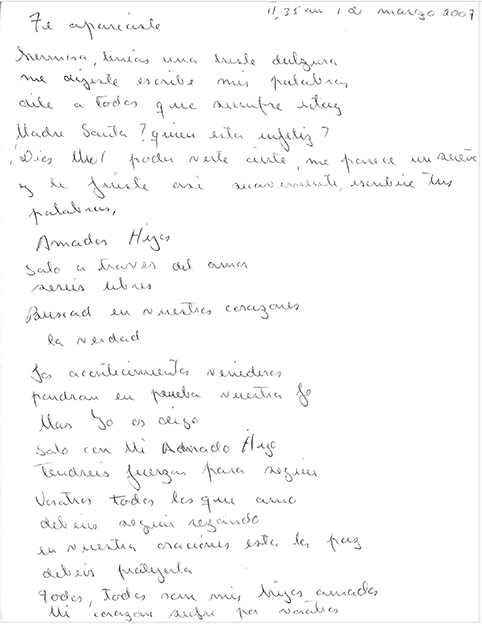 11,35 am 1 de marzo 2007
Te apareciste
Hermosa, tenias una triste dulzura
me dijiste escribe mis palabras
dile a todos que siempre estoy
Madre Santa? quien esta infeliz?
¡Dios Mio! poder verte ante, me parece un sueño
y te fuiste asi suavemente, escribire tus
palabras,
Amados Hijos
Solo a traves del amor
sereis libres
Buscad en vuestros corazones
la verdad
Los acontecimientos venideros
pondran en prueba vuestra fe
Mas Yo os digo
Solo con Mi Adorado Hijo
Tendreis fuerzas para seguir
Vosotros todos los que amo
deben seguir rezando
en vuestra oraciones esta la paz
debeis protegerla
Todos, todos son mis hijos amados
Mi corazon sufre por vosotros